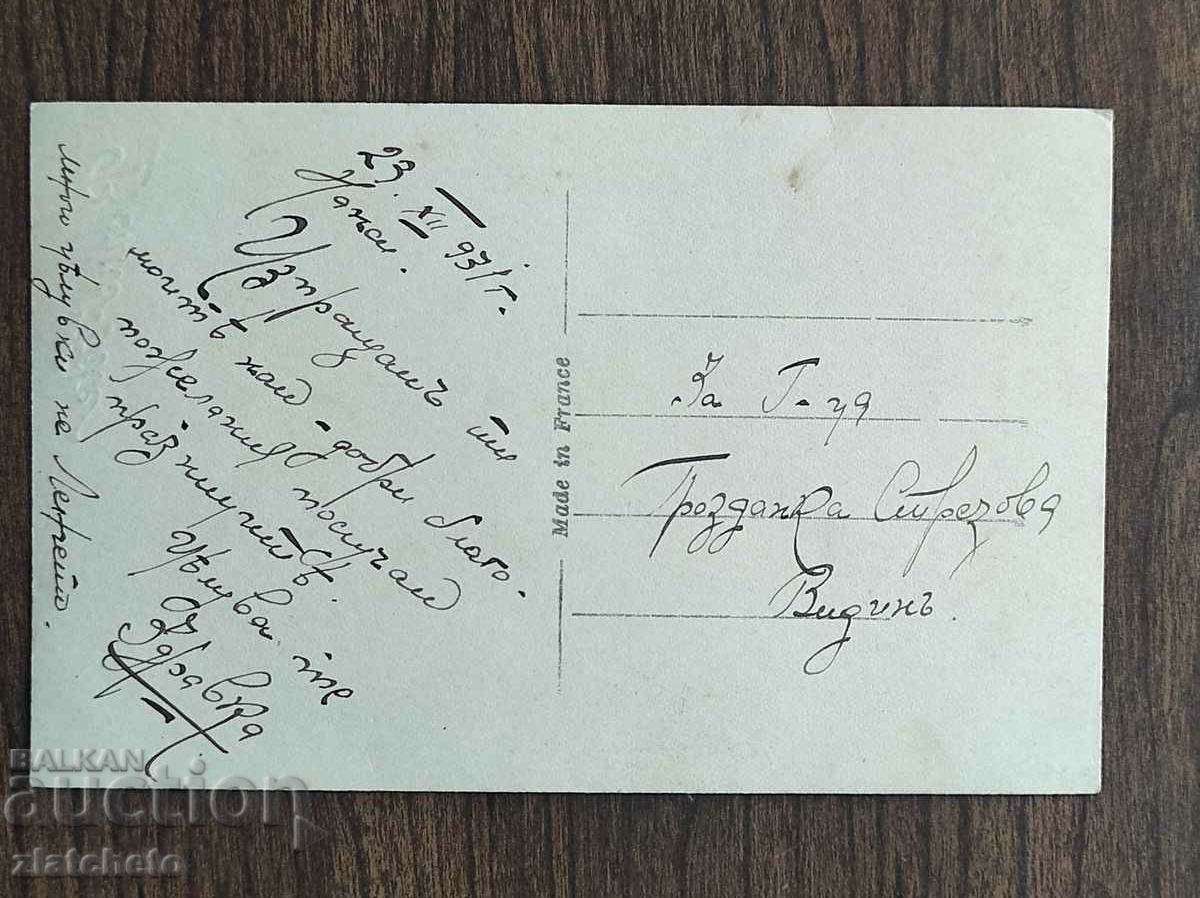 23. XII 931 г.
Нанси.
Изпращамъ ти
моитѣ най-добри благо-
пожелания по случай
празницитѣ.
Цѣлува те
Здравка
много цѣлувки на Ленчето.
Made in France
За Г-ца
Грозданка Стрезова
Видинъ
BALKAN
auction
zlatcheto